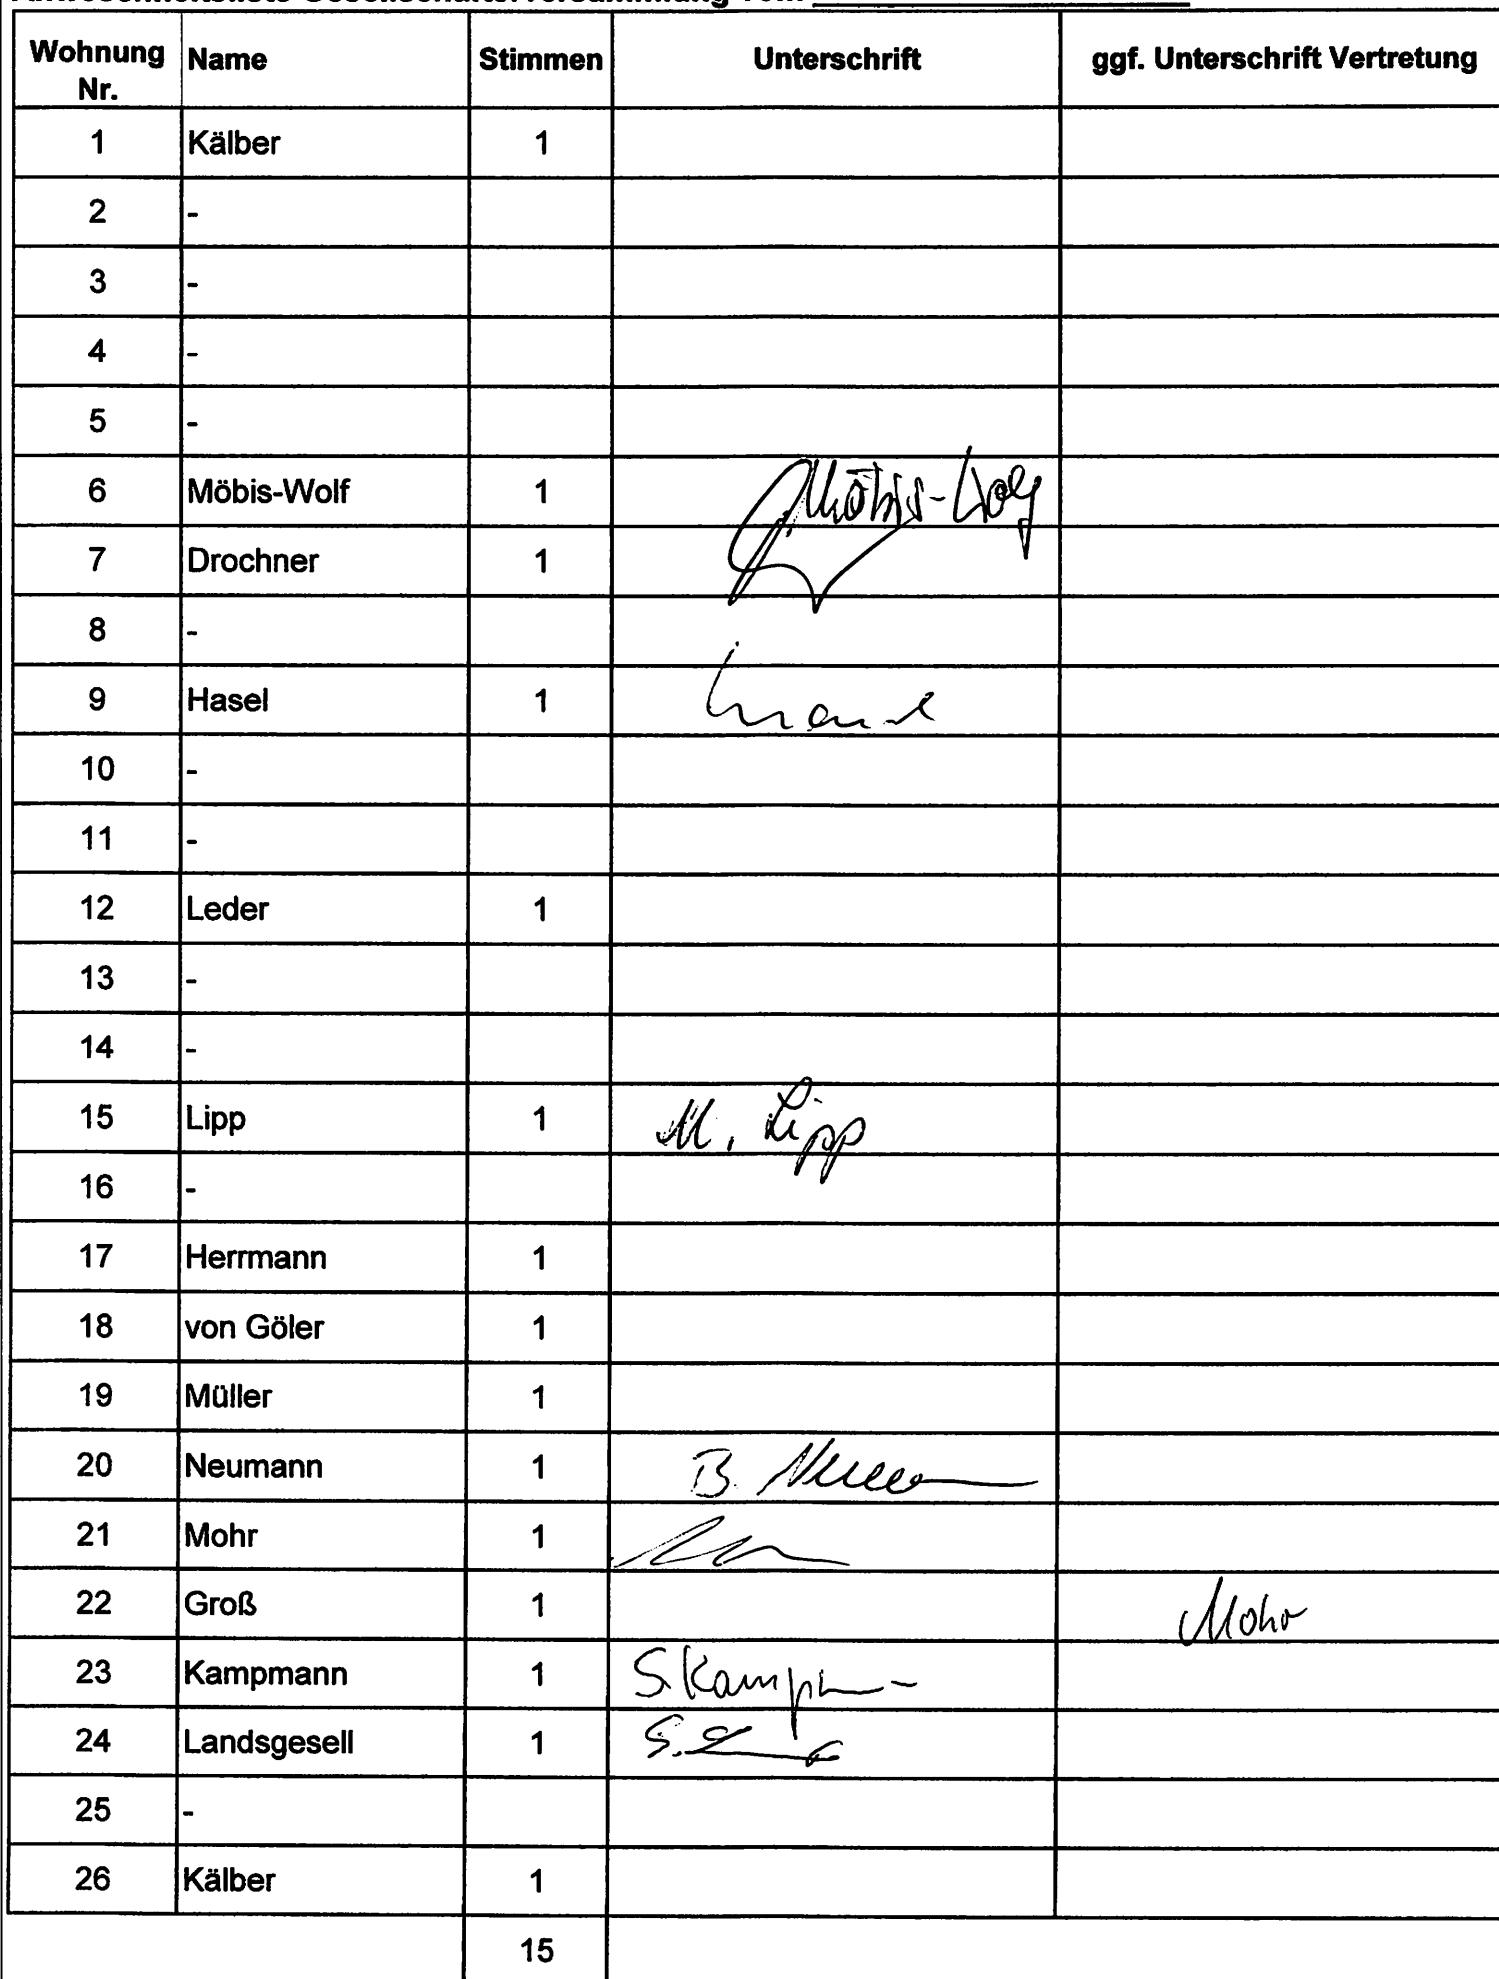 Anwesenheitsliste Gesellschafterversammlung vom
Wohnung Nr. Name Stimmen Unterschrift ggf. Unterschrift Vertretung
1 Kälber 1
2 -
3 -
4 -
5 -
6 Möbis-Wolf 1 Möbis-Wolf
7 Drochner 1
8 -
9 Hasel 1
10 -
11 -
12 Leder 1
13 -
14 -
15 Lipp 1 M. Lipp
16 -
17 Herrmann 1
18 von Göler 1
19 Müller 1
20 Neumann 1 B. Neumann
21 Mohr 1
22 Groß 1 Mohr
23 Kampmann 1 S. Kampmann
24 Landsgesell 1 S.
25 -
26 Kälber 1
15